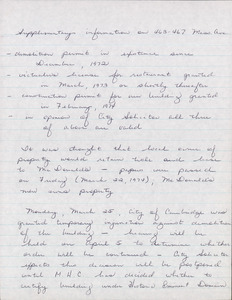 Supplementary information on 463-467 Mass Ave
- demolition permit in existence since
December, 1972
- victualers license for restaurant granted
in March, 1973 or shortly thereafter
- construction permit for new building granted
in February, 1974
- in opinion of City Solicitor all three
of above are valid
It was thought that bank owner of
property would retain title and lease
to McDonald's - papers were passed
on Friday (March 22, 1974), McDonald's
now owns property
Monday, March 25 City of Cambridge was
granted temporary injunction against demolition
of the building - hearing will be
held on April 5 to determine whether
order will be continued - City Solicitor
expects the decision will be postponed
until M.H.C. has decided whether to
certify building under Historic